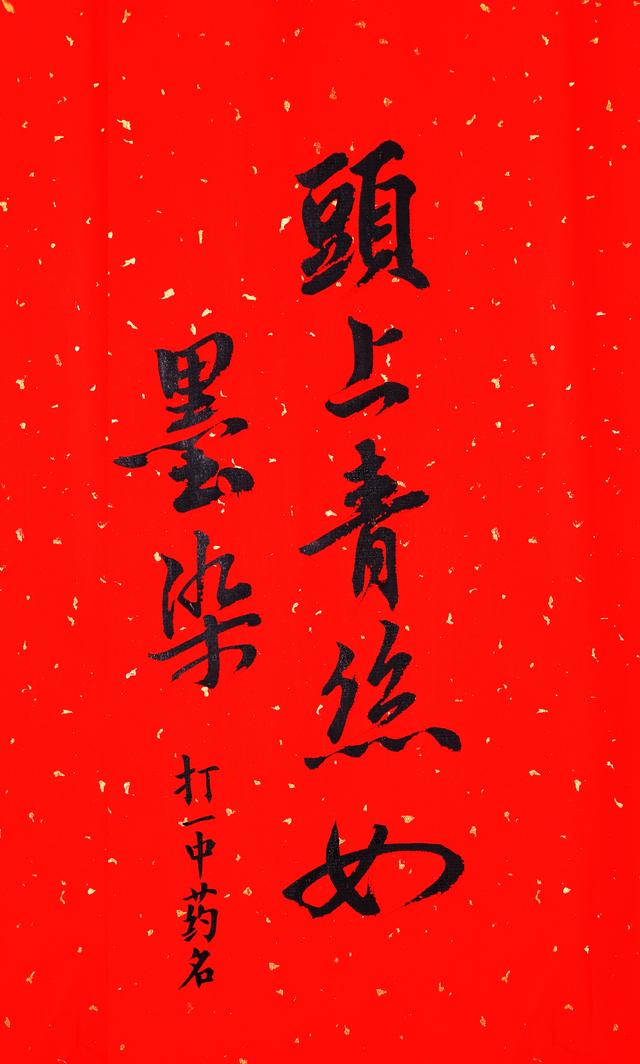 頭上青絲如
墨染
打一中药名